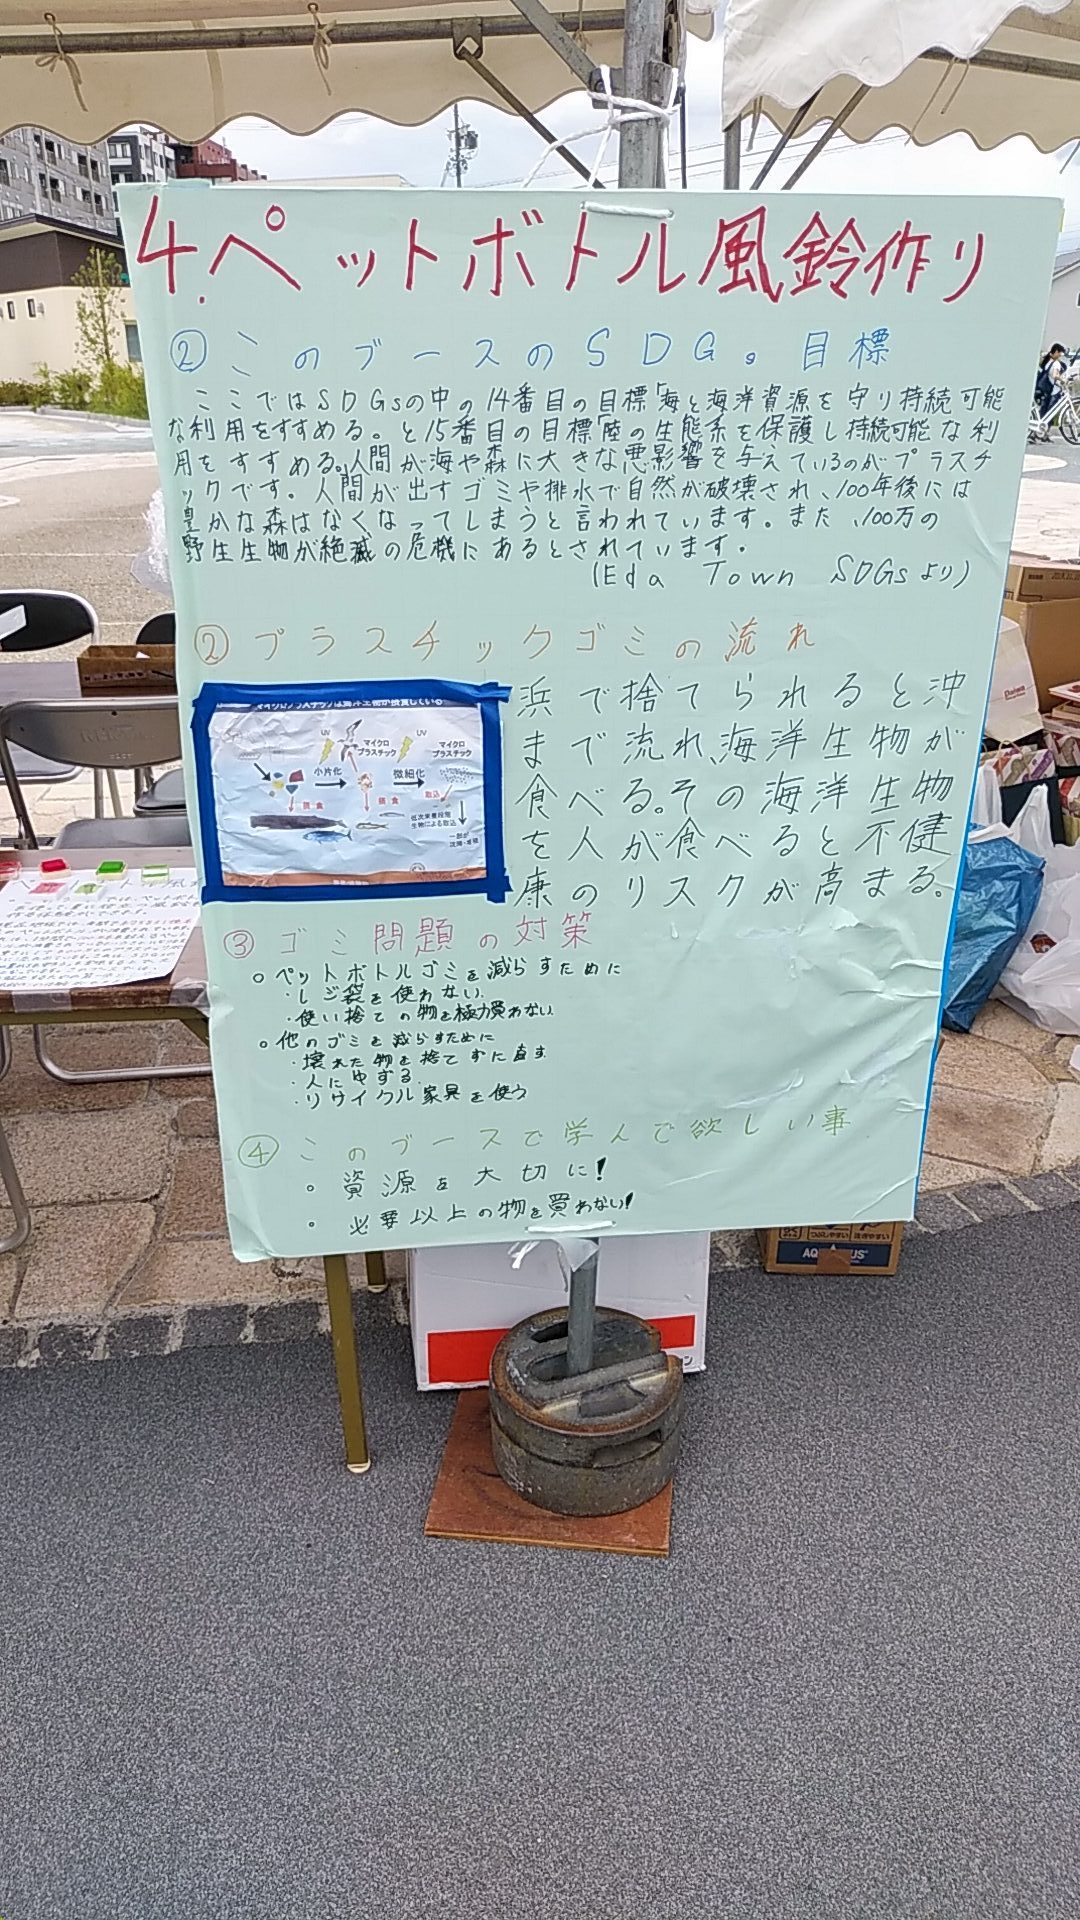 4.ペットボトル風鈴作り
②このブースのSDGs目標
ここではSDGsの中の14番目の目標「海と海洋資源を守り持続可能
な利用をすすめる。と15番目の目標「陸の生態系を保護し持続可能な利
用をすすめる。人間が海や森に大きな悪影響を与えているのがプラスチ
ックです。人間が出すゴミや排水で自然が破壊され、100年後には
豊かな森はなくなってしまうと言われています。また、100万の
野生生物が絶滅の危機にあるとされています。
(Eda Town SDGsより)
②プラスチックゴミの流れ
マイクロプラスチックは海洋生物が摂食している
UV
UV
マイクロ
プラスチック
マイクロ
プラスチック
小片化
微細化
摂食
摂食
取込
低次栄養段階
生物による取込
一部が
沈降・堆積
浜で捨てられると沖
まで流れ、海洋生物が
食べる。その海洋生物
を人が食べると不健
康のリスクが高まる。
③ゴミ問題の対策
○ペットボトルゴミを減らすために
・レジ袋を使わない
・使い捨ての物を極力買わない
○他のゴミを減らすために
・壊れた物を捨てずに直す
・人にゆずる
・リサイクル家具を使う
④このブースで学んで欲しい事
○資源を大切に!
○必要以上の物を買わない!